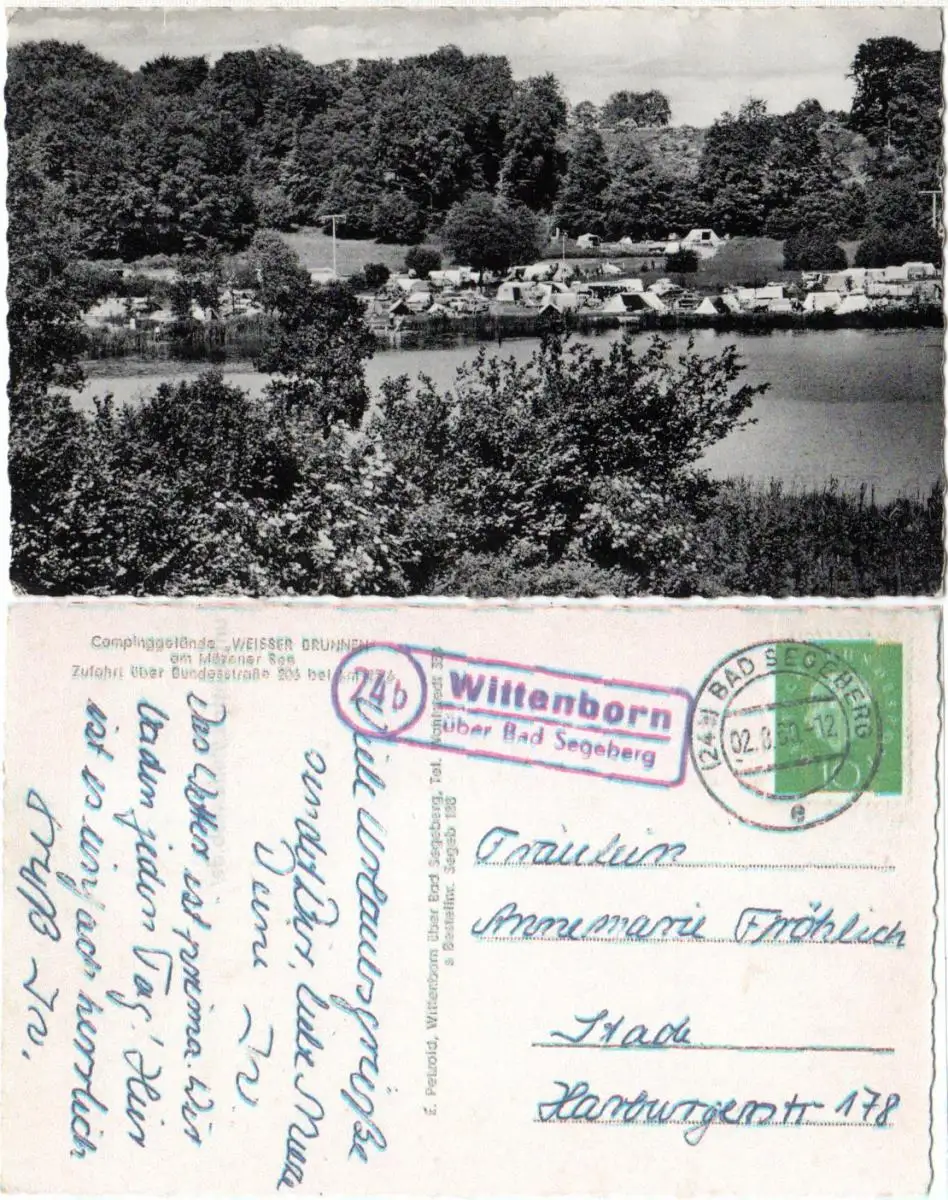 Campinggelände „WEISSER BRUNNEN“
am Mözener See
Zufahrt über Bundesstraße 206 bei km
24b
Wittenborn
über Bad Segeberg
(24b) BAD SEGEBERG
02.8.60.-12
e
10
Viele Urlaubsgrüße
sendet Dir, liebe
Deine
Das Wetter ist prima. Wir
baden jeden Tag! Hier
ist es einfach herrlich
Gruß
E. Petzold, Wittenborn über Bad Segeberg, Tel. Wahlstedt
Bestellnr. Segeb 188
Fräulein
Annemarie Fröhlich
Stade
Harburgerstr 178